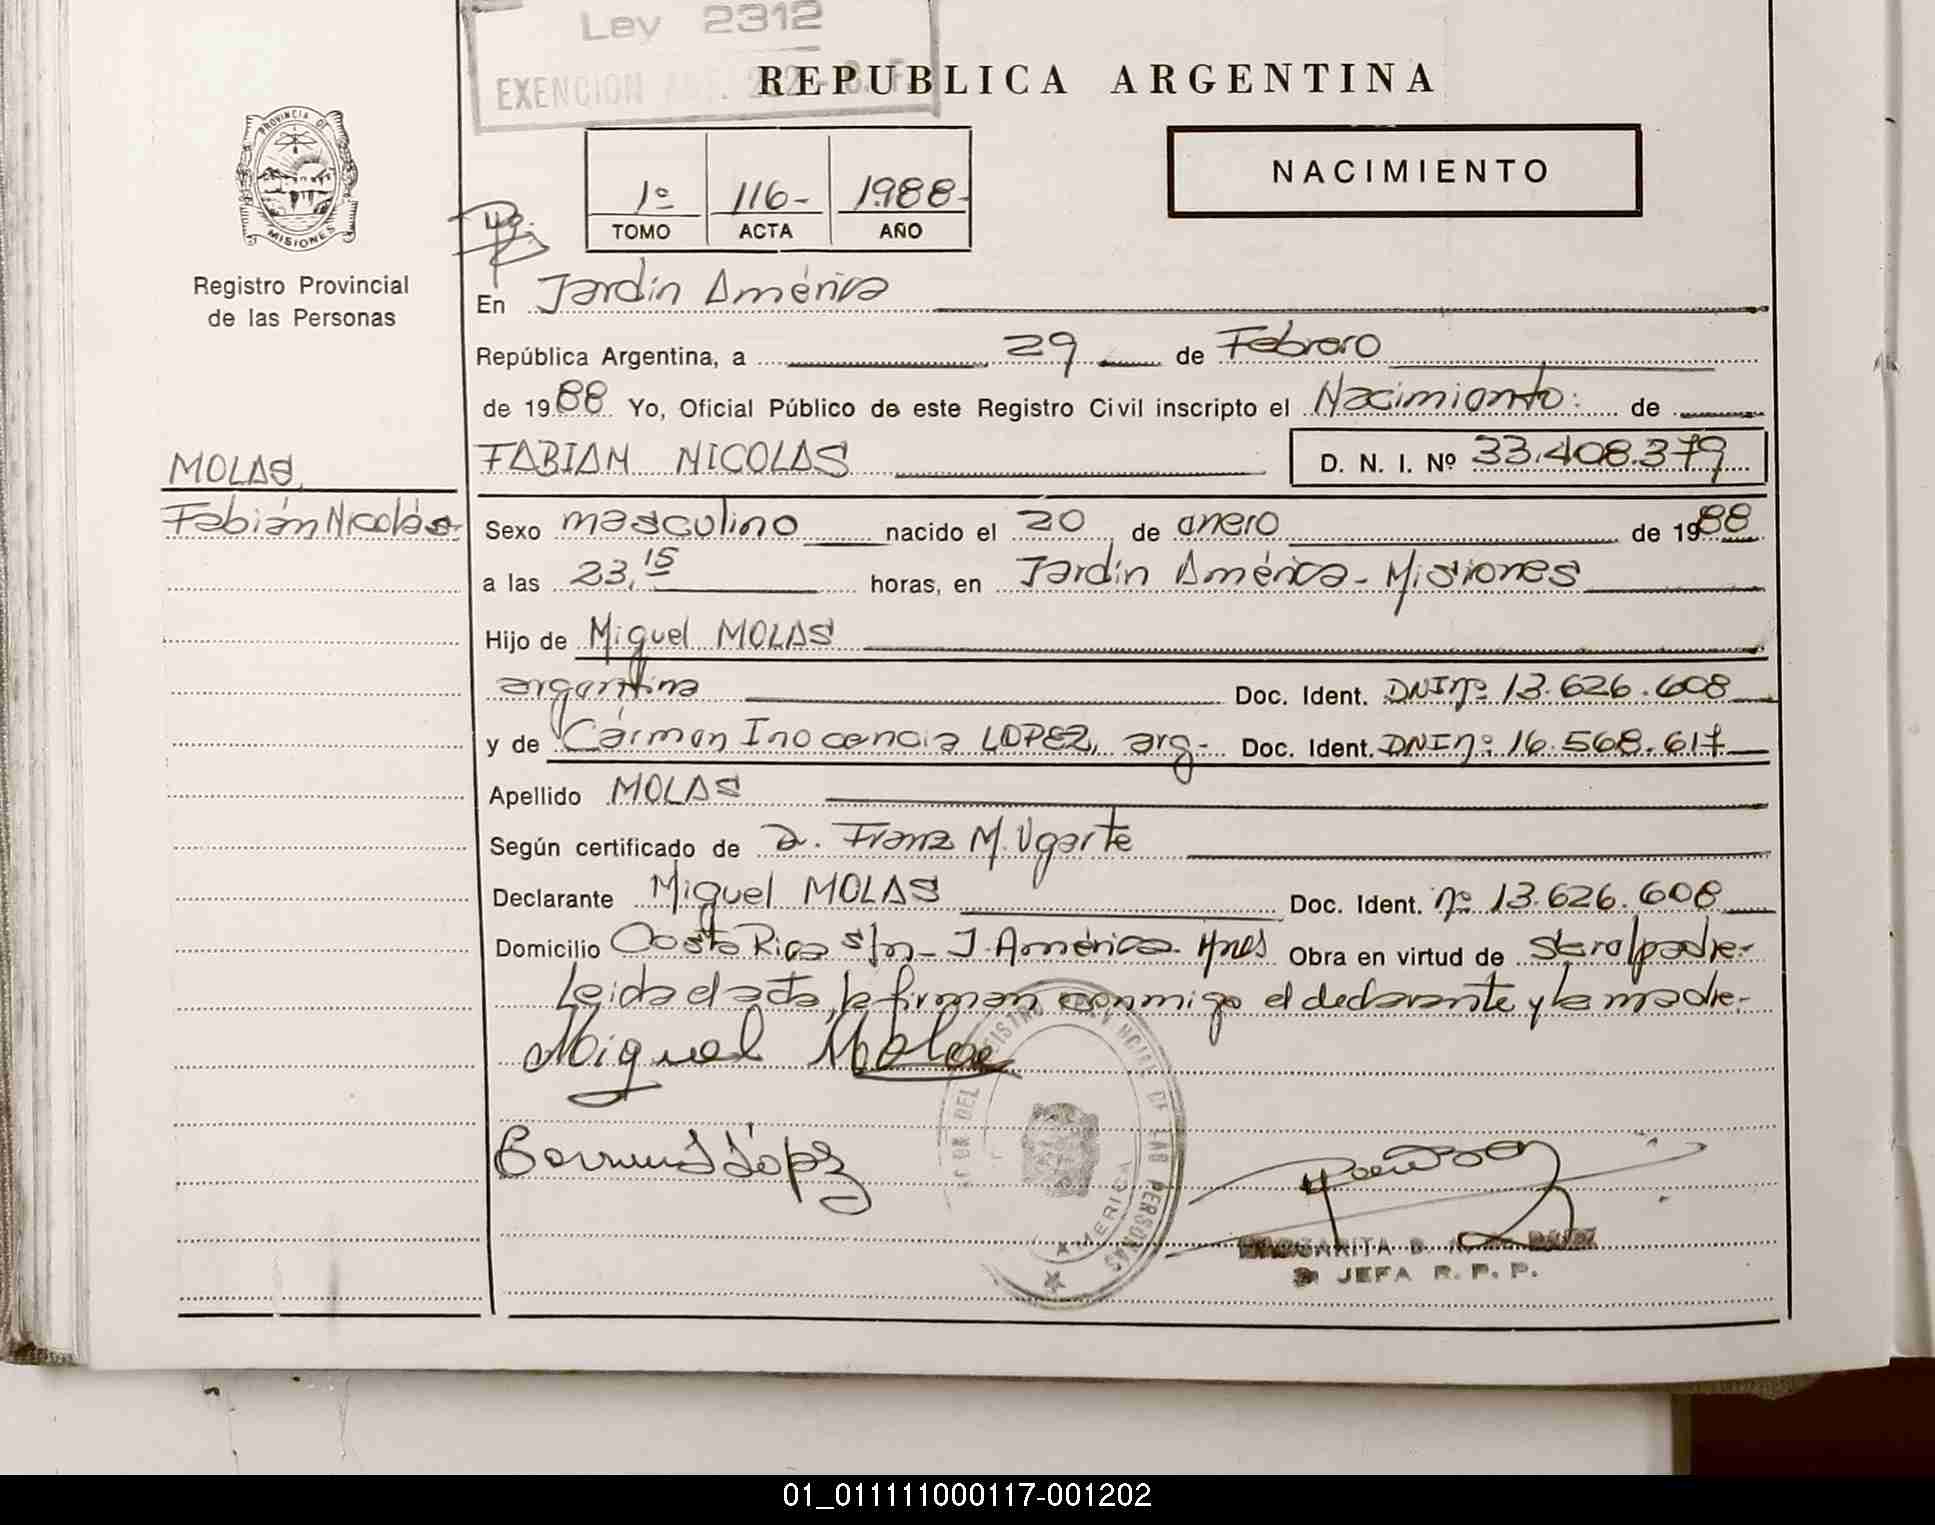 Ley 2312
EXENCION
REPUBLICA ARGENTINA
NACIMIENTO
1º 116- 1988-
TOMO ACTA AÑO
PROVINCIA DE
MISIONES
Registro Provincial
de las Personas
En Jardín América
República Argentina, a 29 de Febrero
de 1988 Yo, Oficial Público de este Registro Civil inscripto el Nacimiento: de
FABIAN NICOLAS D. N. I. Nº 33.408.379
MOLAS,
Fabián Nicolás-
Sexo masculino nacido el 20 de enero de 1988
a las 23,15 horas, en Jardín América- Misiones
Hijo de Miguel MOLAS
argentina Doc. Ident. DNI nº 13.626.608
y de Cármen Inocencia LOPEZ, arg- Doc. Ident. DNI nº 16.568.617
Apellido MOLAS
Según certificado de D. Franz M. Ugarte
Declarante Miguel MOLAS Doc. Ident. nº 13.626.608
Domicilio Costa Rica s/n- J. América- Mnes Obra en virtud de ser el padre-
Leida el acta, la firman conmigo el declarante y la madre-
Miguel Molas
López
PROVINCIAL DE LAS PERSONAS
AMERICA
JEFA R. P. P.
01_011111000117-001202